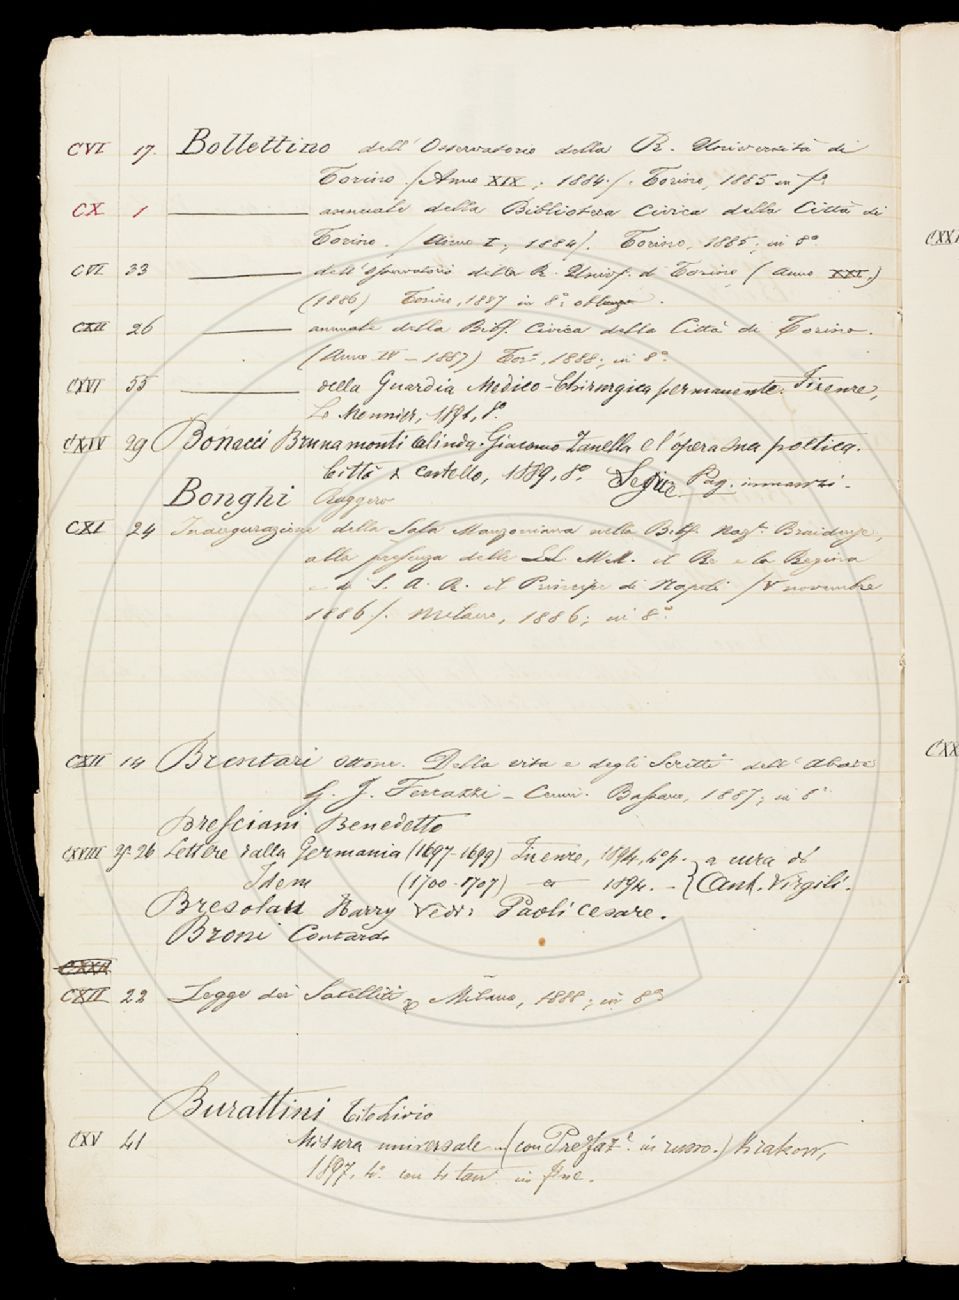 CVI 17. Bollettino dell'Osservatorio della R. Università di
Torino /Anno XIX; 1884./. Torino, 1885 in fº
CX 1 ——— annuale della Biblioteca Civica della Città di
Torino. /Anno I; 1884/. Torino, 1885; in 8º
CVI 33 ——— dell'Osservatorio della R. Univ. di Torino (anno XXI)
(1886) Torino, 1887 in 8º oblungo.
CXII 26 ——— annuale della Bibl. Civica della Città di Torino.
(Anno IV – 1887) Torº, 1888; in 8º
CXVI 55 ——— della Guardia Medico-Chirurgica permanente. Firenze,
Le Monnier, 1891, 8º
CXIV 29 Bonacci Brunamonti Alinda. Giacomo Zanella e l'opera sua poetica.
Città di Castello, 1889, 8º. Segue Pag. innanzi.
Bonghi Ruggero
CXI 24 Inaugurazione della Sala Manzoniana nella Bibl. Nazª Braidense,
alla presenza delle LL. MM. il Re e la Regina
e di S. A. R. il Principe di Napoli /V novembre
1886/. Milano, 1886; in 8º
CXII 14 Brentari Ottone. Della vita e degli Scritti dell'Abate
G. J. Ferrazzi – Cenni. Bassano, 1887; in 8º
CXX
Bresciani Benedetto
CXVIII 25-26 Lettere dalla Germania (1697-1699) Firenze, 1894, 4º p. } a cura di
Idem (1700-1707) — 1894. – } Ant. Virgili.
Bresolau Harry Vedi: Paoli Cesare.
Broni Contardo
CXXII
CXII 22 Legge dei Satelliti Milano, 1888; in 8º
Burattini Tito Livio
CXV 41 Misura universale (con Prefazº in russo.) Krakow,
1897, 4º con 4 tav. in fine.